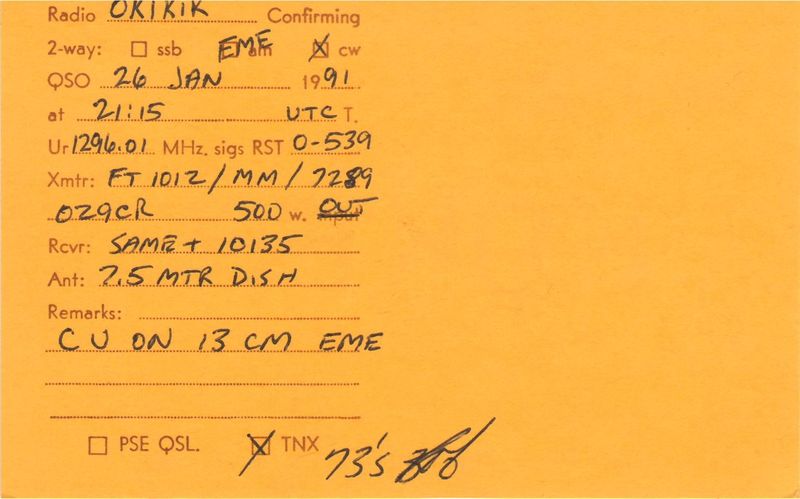 Radio OK1KIR Confirming
2-way: ssb EME am cw
QSO 26 JAN 1991
at 21:15 UTC T.
Ur 1296.01 MHz. sigs RST O-539
Xmtr: FT 1012/MM/7289
OZ9CR 500 w. OUT
Rcvr: SAME + 10135
Ant: 7.5 MTR DISH
Remarks:
C U ON 13 CM EME
PSE QSL. TNX 73's